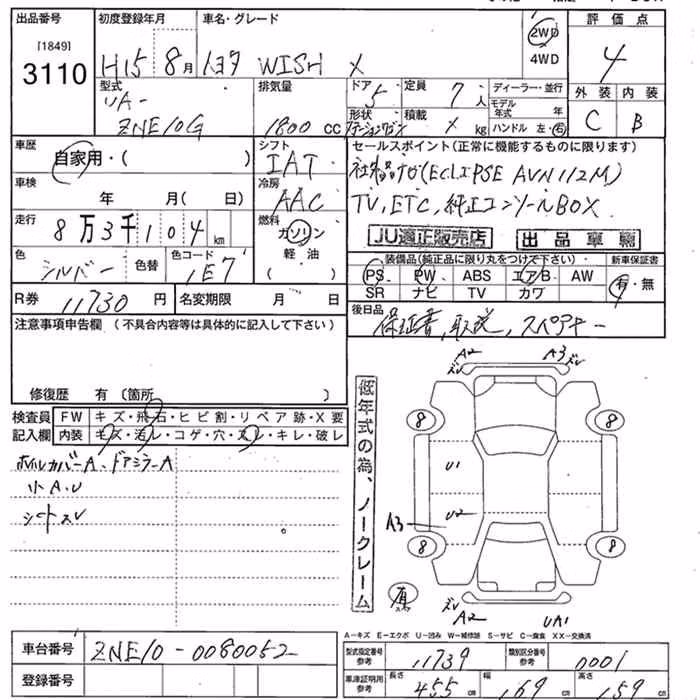 出品番号 初度登録年月 車名・グレード 2WD 評価点
[1849] 4WD
3110 H15 8月 トヨタ WISH X 4
型式 排気量 ドア 定員 ディーラー・並行 外装 内装
UA- 5 7人 モデル年式 年
ZNE10G 1800 cc 形状 ステーションワゴン 積載 X kg ハンドル 左・右 C B
車歴 シフト セールスポイント(正常に機能するものに限ります)
自家用・( ) IAT 社外品ナビ(ECLIPSE AVN112M)
車検 冷房
年 月( 日) AAC TV, ETC, 純正コンソールBOX
走行 燃料
8万3千104km ガソリン JU適正販売店 出品車輌
軽油
色 色コード 装備品(純正品に限り丸をつけて下さい) 新車保証書
シルバー 色替 1E7 PS PW ABS エアB AW 有・無
SR ナビ TV カワ
R券 11730円 名変期限 月 日
後日品
注意事項申告欄 (不具合内容等は具体的に記入して下さい) 保証書, 取説, スペアキー
修復歴 有 (箇所 )
検査員 FW キズ・飛石・ヒビ割・リペア跡・X要
記入欄 内装 キズ・汚レ・コゲ・穴・スレ・キレ・破レ
ホイルカバーA、ドアミラーA
小A.U
シートスレ
低年式の為、ノークレーム
A2 A3
ズレ ズレ
8 8
U1
U2
A3
8 8
有
ズレ
A2 UA1
A-キズ E-エクボ U-凹み W-補修跡 S-サビ C-腐食 XX-交換済
車台番号 ZNE10-0080052
登録番号
型式指定番号 参考 11739 類別区分番号 参考 0001
車庫証明用 参考 長さ 455cm 幅 169cm 高さ 159cm